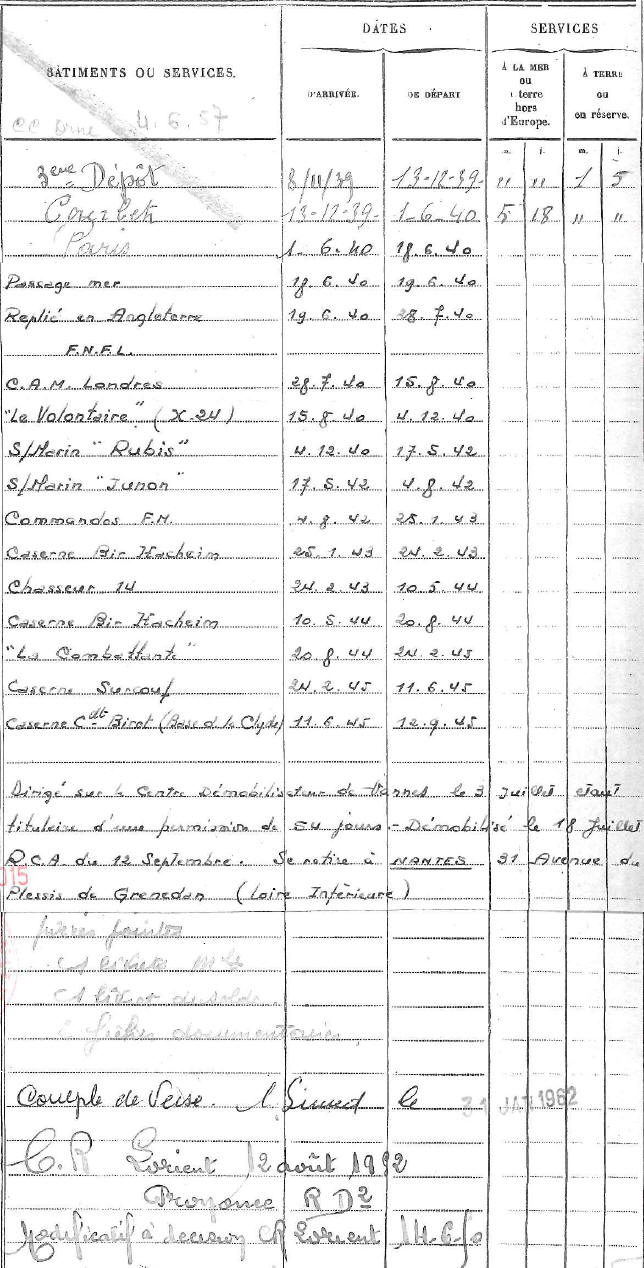 DATES SERVICES
BÂTIMENTS OU SERVICES. D'ARRIVÉE. DE DÉPART
À LA MER ou à terre hors d'Europe. À TERRE ou en réserve.
4.6.57
m. j. m. j.
3eme Dépôt 8/11/39 13-12-39- " " 1 5
Courbet 13-12-39- 1-6-40 5 18 " "
Paris 1. 6. 40 18. 6. 40
Passage mer 18. 6. 40 19. 6. 40
Replié en Angleterre 19. 6. 40 28. 7. 40
F.N.F.L.
C.A.M. Londres 28. 7. 40 15. 8. 40
"Le Volontaire" (X-24) 15. 8. 40 4. 12. 40
S/Marin "Rubis" 4. 12. 40 17. 5. 42
S/Marin "Junon" 17. 5. 42 4. 8. 42
Commandos F.M. 4. 8. 42 25. 1. 43
Caserne Bir Hacheim 25. 1. 43 24. 2. 43
Chasseur 14 24. 2. 43 10. 5. 44
Caserne Bir Hacheim 10. 5. 44 20. 8. 44
"La Combattante" 20. 8. 44 24. 2. 45
Caserne Surcouf 24. 2. 45 11. 6. 45
Caserne Cdt Birot (Base de la Clyde) 11. 6. 45 12. 9. 45
Dirigé sur le Centre Démobilisateur de Vannes le 3 Juillet étant
titulaire d'une permission de 54 jours.- Démobilisé le 18 Juillet
R.C.A. du 12 Septembre. Se retire à NANTES 31 Avenue du
Plessis de Grenedan (Loire Inférieure)
015
pièces jointes
1 livret de solde
fiches documentaires
Couple de Veise. le 31 1962
C.R Lorient 12 août
R D2
Modificatif à décision CR Lorient